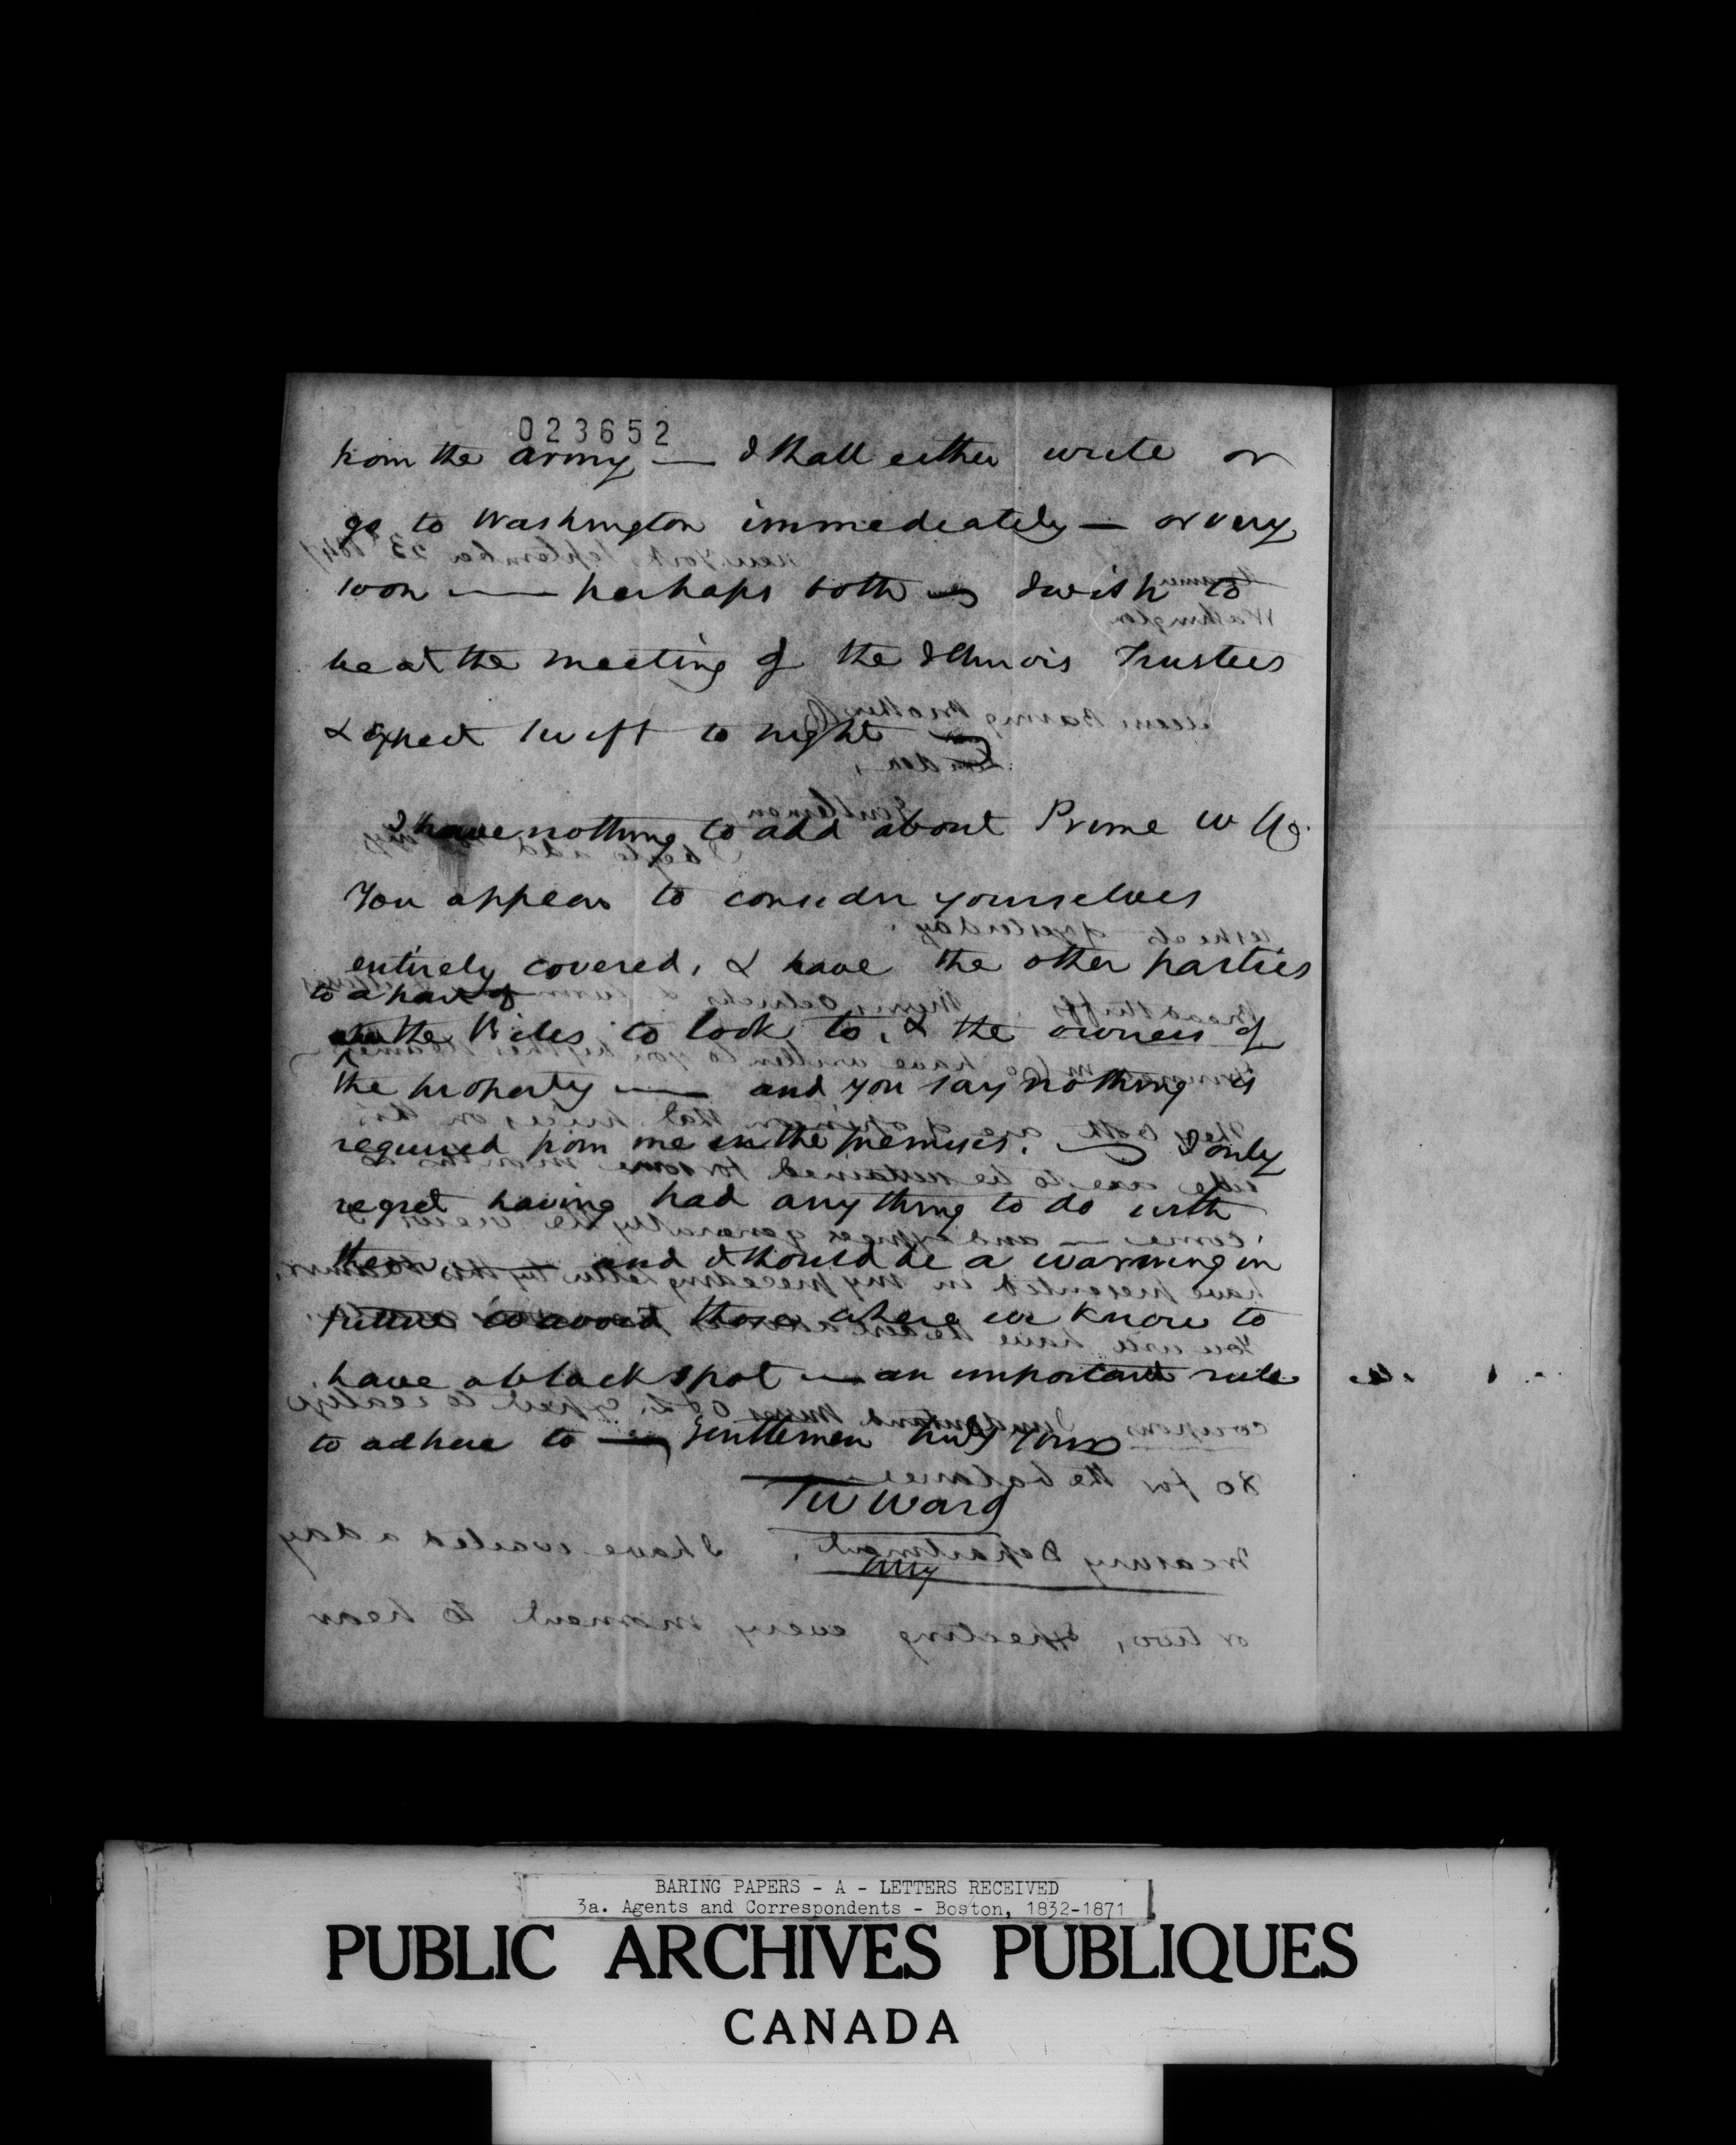 023652
from the army — I shall either write or
go to Washington immediately — or very
soon — perhaps both — I wish to
be at the meeting of the Illinois Trustees
& expect Swift to night
I have nothing to add about Prime W & Co.
You appear to consider yourselves
entirely covered, & have the other parties
to a part of
the Bills to look to, & the owners of
the property — and you say nothing is
required from me in the premises. — I only
regret having had anything to do with
them — and it should be a warning in
future to avoid those where we know to
have a black spot — an important rule
to adhere to — Gentlemen truly yours
T W Ward
BARING PAPERS - A - LETTERS RECEIVED
3a. Agents and Correspondents - Boston, 1832-1871
PUBLIC ARCHIVES PUBLIQUES
CANADA